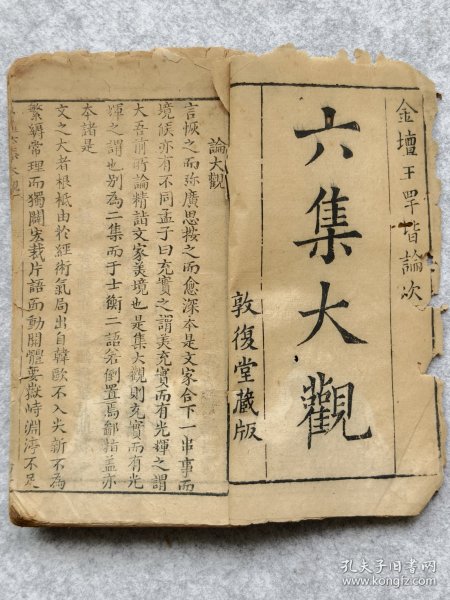 金壇王罕皆論次
六集大觀
敦復堂藏版
論大觀
言恢之而弥廣思按之而愈深本是文家合下一串事而
境候亦有不同孟子曰充實之謂美充實而有光輝之謂
大吾前時論精詣文家美境也是集大觀則充實而有光
輝之謂也别為二集而于士衡二語畧倒置焉鄙指盖亦
本諸是
文之大者根柢由於經術氣局出自韓歐不入尖新不為
繁縟常理而獨闢宏裁片語而動關體要嶽峙淵渟不足
孔夫子旧书网
www.kongfz.com